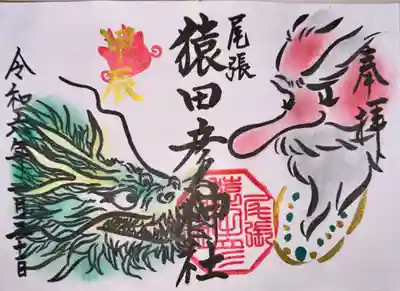 奉拝
尾張
猿田彦神社
甲辰
令和六年二月二十日